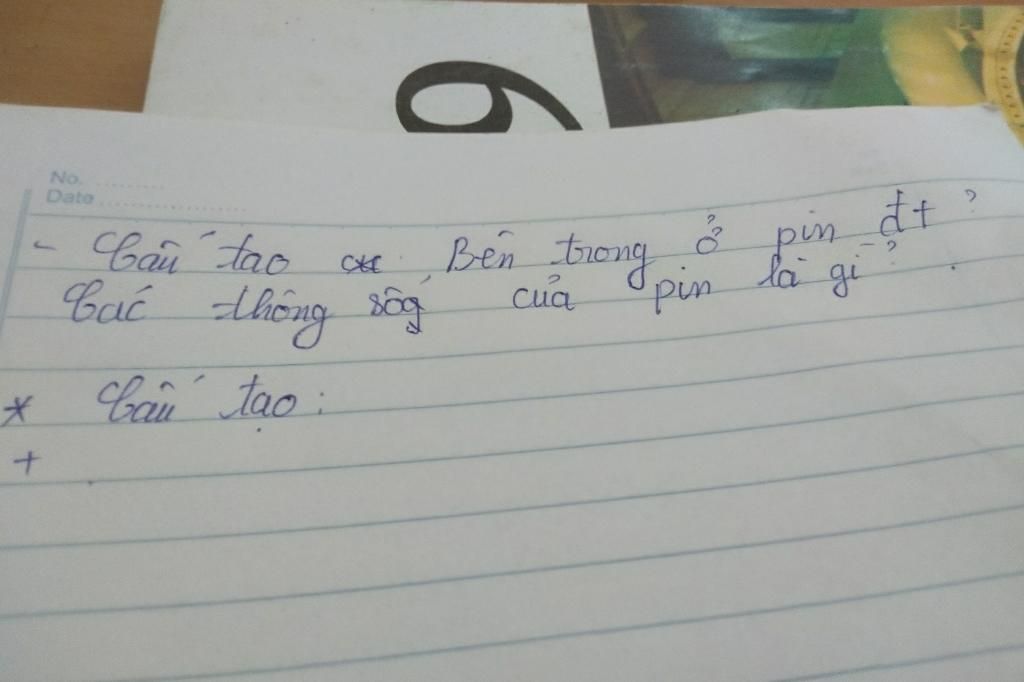 6
No. ..........
Date ......................
- Cấu tạo Bên trong ở pin đt?
Các thông số của pin là gì?
* Cấu tạo:
+